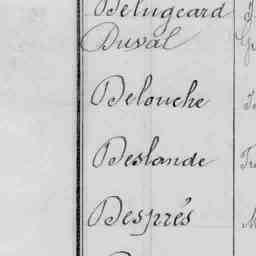 Delugeard
Duval
Delouche
Deslande
Després